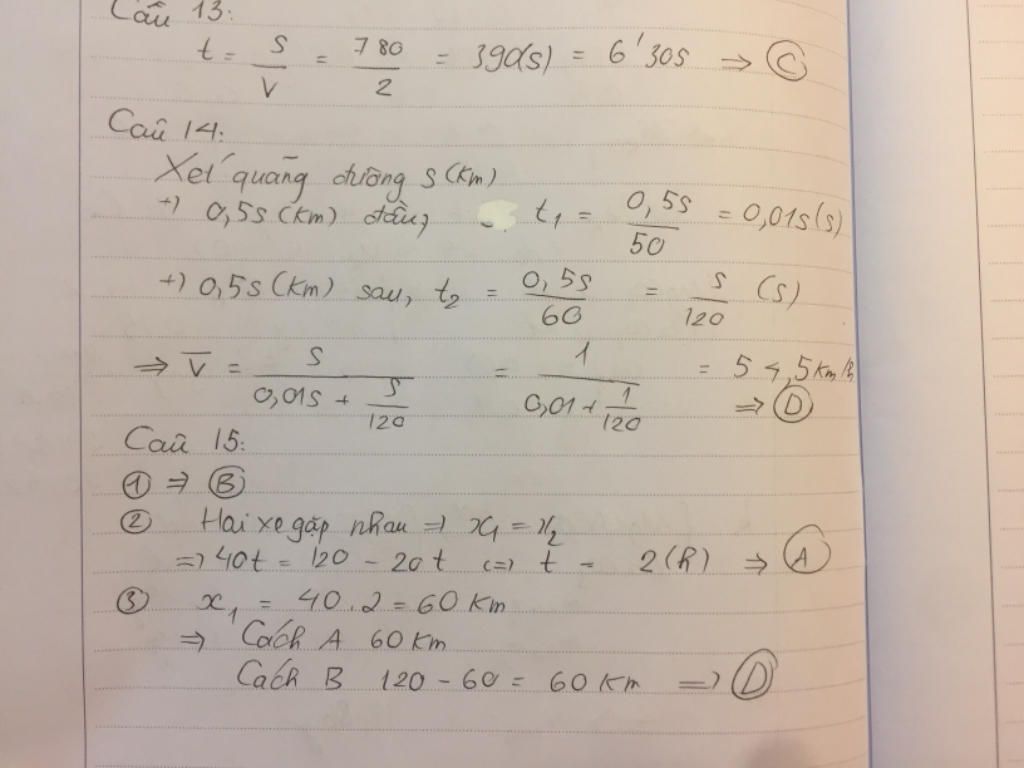 Câu 13:
t = s/v = 780/2 = 390(s) = 6'30s => C
Câu 14:
Xét quãng đường s (km)
+) 0,5s (km) đầu, t₁ = 0,5s/50 = 0,01s(s)
+) 0,5s (km) sau, t₂ = 0,5s/60 = s/120 (s)
=> v̅ = s/(0,01s + s/120) = 1/(0,01 + 1/120) = 54,5 km/h
=> D
Câu 15:
① => B
② Hai xe gặp nhau => x₁ = x₂
=> 40t = 120 - 20t <=> t = 2(h) => A
③ x₁ = 40.2 = 60 km
=> Cách A 60 km
Cách B 120 - 60 = 60 km => D